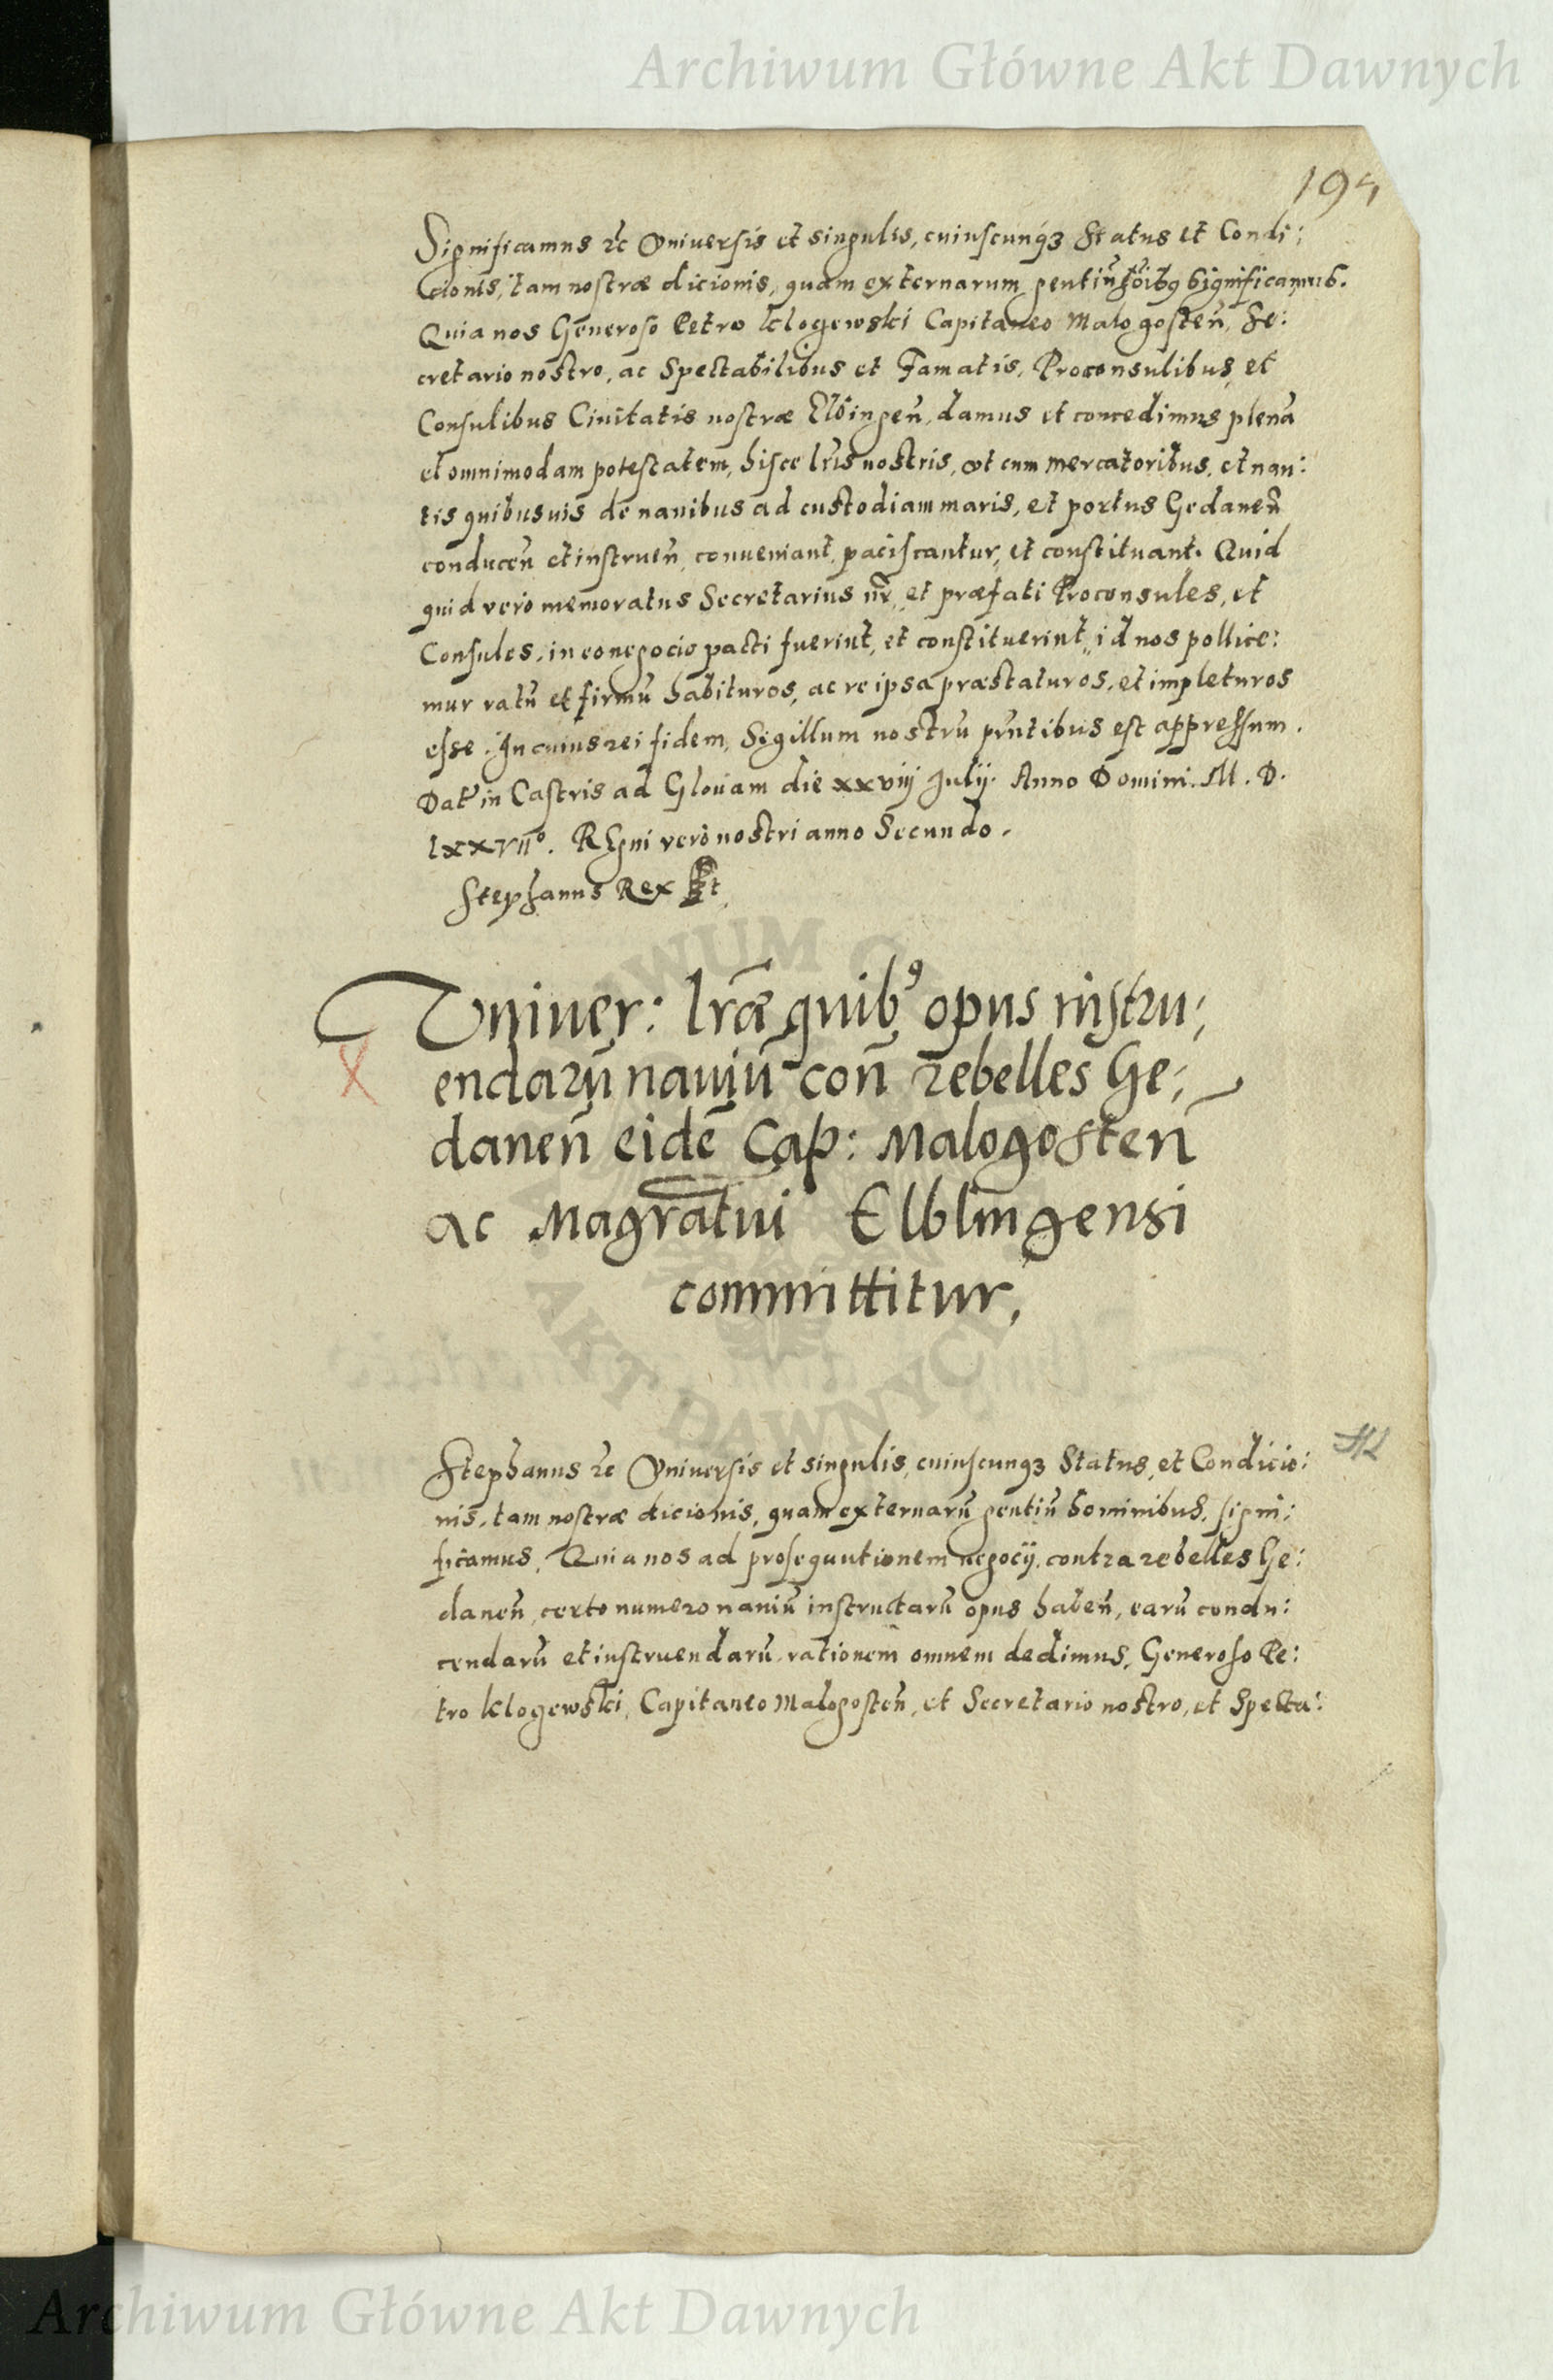 Archiwum Główne Akt Dawnych
195
Significamus &c Vniuersis et singulis, cuiuscunq3 Status et Condi:
cionis, tam nostræ dicionis, quam externarum gentiū hōibq significamus.
Quia nos Generoso Petro Klogewski Capitaneo Malogosteñ, Se:
cretario nostro, ac Spectabilibus et Famatis, Proconsulibus et
Consulibus Ciuitatis nostræ Elbingeñ, damus et concedimus plenā
et omnimodam potestatem, hisce lr̄is nostris, vt cum mercatoribus, et nau:
tis quibusuis de nauibus ad custodiam maris, et portus Gedaneñ
conduceñ et instrueñ, conueniant, paciscantur, et constituant. Quid
quid vero memoratus Secretarius nr̄, et præfati Proconsules, et
Consules, in eo negocio pacti fuerint, et constituerint, id nos pollice:
mur ratū et firmū habituros, ac re ipsa præstaturos, et impleturos
esse. In cuius rei fidem, Sigillum nostrū pr̄ntibus est appressum.
Dat' in Castris ad Glouam die xxviij Julij. Anno Domini. M. D.
LXXVIIº. Regni verò nostri anno Secundo.
Stephanus Rex
Vniuer: lr̄æ quib9 opus instru:
endarū nauiū con̄ rebelles Ge:
daneñ eidē Cap: Malogosteñ
ac Magr̄atui Elblingensi
committitur,
Stephanus &c Vniuersis et singulis, cuiuscunq3 Status, et Condicio:
nis, tam nostræ dicionis, quam externarū gentiū hominibus, signi:
ficamus. Quia nos ad prosequutionem negocij, contra rebelles Ge:
daneñ, certo numero nauiū instructarū opus habeñ, earū condu:
cendarū et instruendarū rationem omnem dedimus, Generoso Pe:
tro Klogewski, Capitaneo Malogosteñ, et Secretario nostro, et Specta:
Archiwum Główne Akt Dawnych